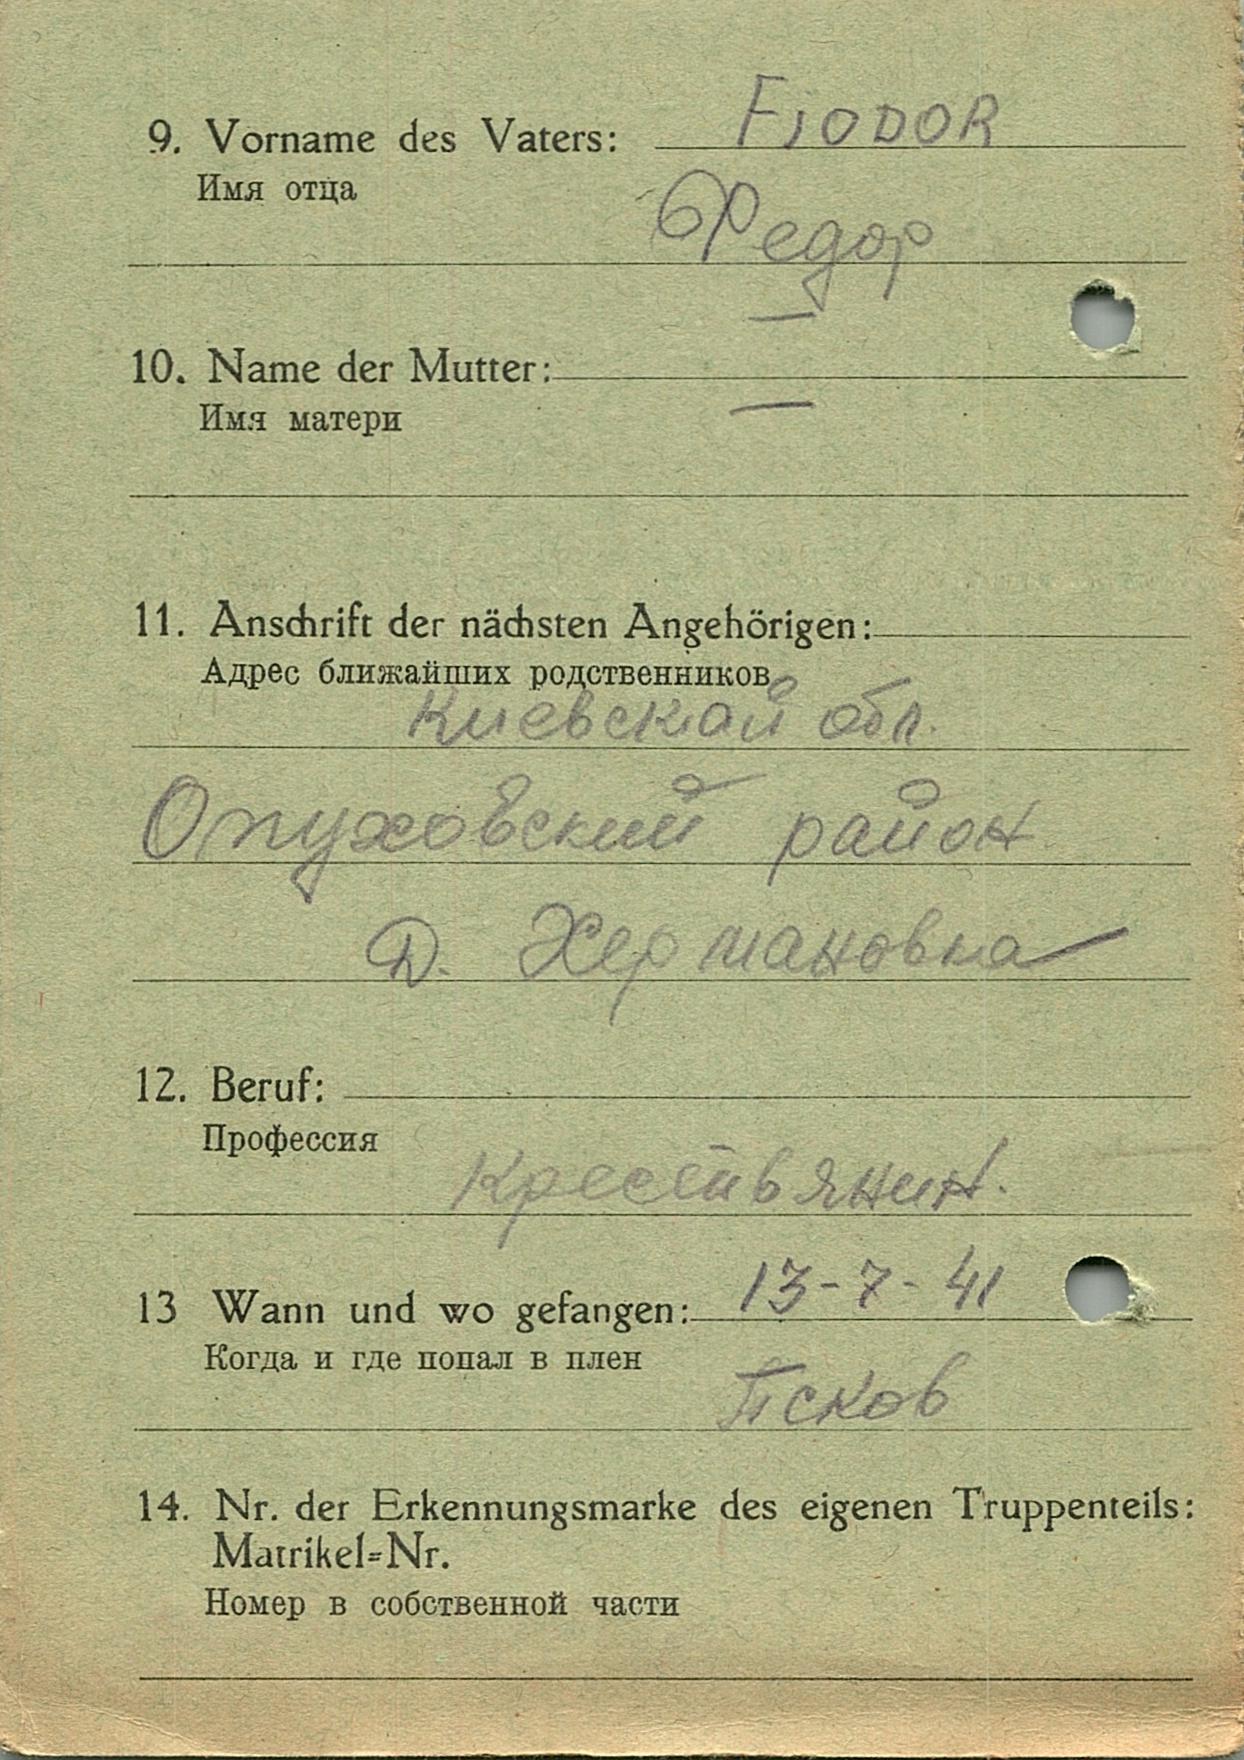 9. Vorname des Vaters: FJODOR
Имя отца
Федор
—
10. Name der Mutter:
Имя матери —
11. Anschrift der nächsten Angehörigen:
Адрес ближайших родственников
Киевскай обл.
Опуховский район
Д. Хермановка
12. Beruf:
Профессия
Крестьянин.
13 Wann und wo gefangen: 13-7-41
Когда и где попал в плен
Псков
14. Nr. der Erkennungsmarke des eigenen Truppenteils:
Matrikel=Nr.
Номер в собственной части